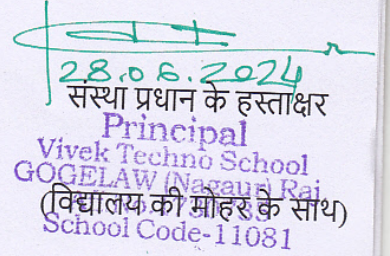 28.06.2024
संस्था प्रधान के हस्ताक्षर
Principal
Vivek Techno School
GOGELAW (Nagaur) Raj.
(विद्यालय की मोहर के साथ)
School Code-11081